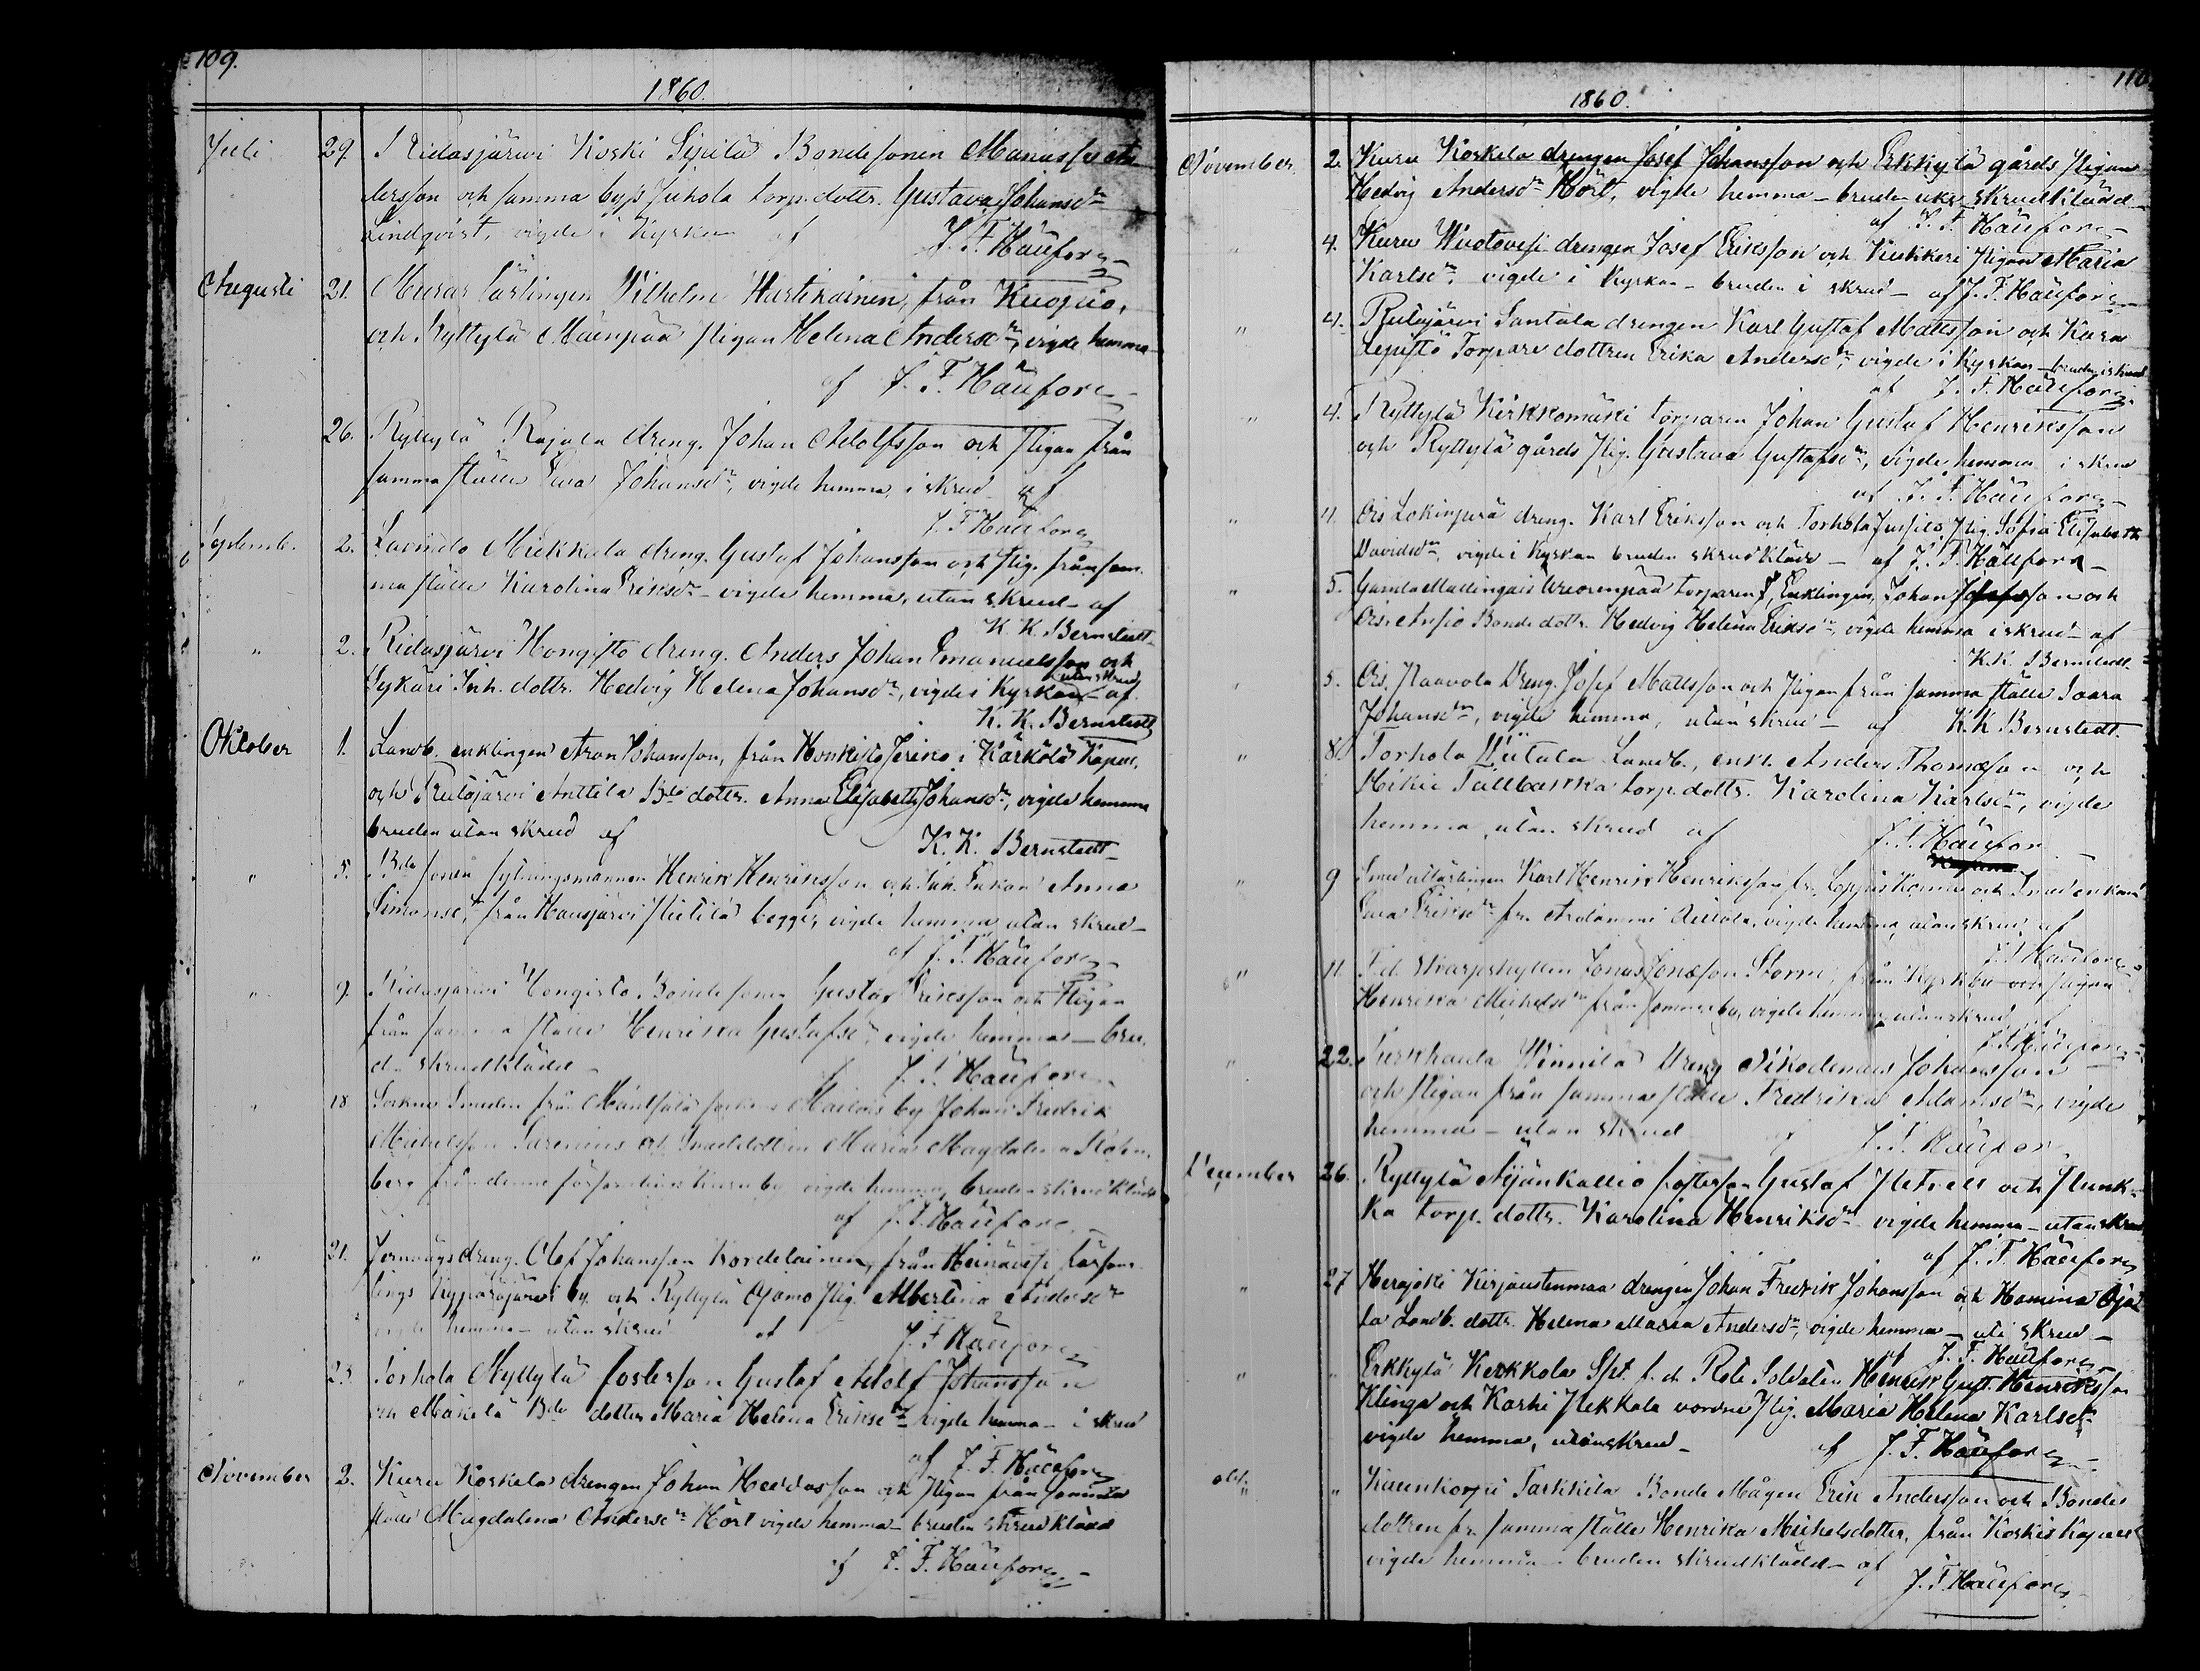 109.
1860.
Juli 29. Ridasjärvi Koski Sipilä Bondesonen Manasse An-
dersson och samma bys Juhola torp. dottr. Gustava Johansdr
Lindqvist, vigde i Kyrkan af J. F. Häufors
Augusti 21. Murar Lärlingen Wilhelm Hartikainen, från Kuopio,
och Ryttylä Mäenpää pigan Helena Andersdr, vigde hemma
af J. F. Häufors
26. Ryttylä Rajala dreng. Johan Adolfsson och pigan från
samma ställe Eva Johansdr, vigde hemma, i skrud af
J. F. Häufors
Septemb. 2. Lavinto Mickkala dreng. Gustaf Johansson och pig. från sam-
ma ställe Karolina Eriksdr - vigde hemma, utan skrud - af
K. K. Bernstedt
" 2. Ridasjärvi Hongisto dreng. Anders Johan Emanuelsson och
Sykäri Inh. dottr. Hedvig Helena Johansdr, vigde i Kyrkan utan skrud af
K. K. Bernstedt
Oktober 1. Landb. enklingen Aron Johansson, från Honkisto i Kärkölä Kapell,
och Pulujärvi Anttila Bde dottr. Anna Elisabeth Johansdr, vigde hemma
bruden utan skrud af K. K. Bernstedt
" 5. Bde sonen sytningsmannen Henrik Henriksson och Inh. Enkan Anna
Simonsdr, från Hausjärvi Pietilä begge, vigde hemma utan skrud
af J. F. Häufors
" 9. Ridasjärvi Hongisto Bondesonen Gustaf Eriksson och Pigan
från samma ställe Henrika Gustafsdr, vigde hemma - bru-
den skrudklädd af J. F. Häufors
" 18 Sockne Smeden från Mäntsälä socken by Johan Fredrik
Michelsson och Smeddottren Maria Magdalena
berg från denne församling by vigde hemma, bruden skrudklädd
af J. F. Häufors
" 21. Jernvägsdreng. Olof Johansson Kordelainen, från Heinävesi försam-
lings by och Ryttylä Ojamo pig. Albertina Andersdr
vigde hemma - utan skrud af J. F. Häufors
" 23. Torhola Myllylä fosterson Gustaf Adolf Johansson
och Mäkelä Bde dotter Maria Helena Eriksdr vigde hemma - i skrud
af J. F. Häufors
November 2. Kuru Koskela drengen Johan och Pigan från samma
ställe Magdalena Andersdr Hört vigde hemma - bruden skrudklädd
af J. F. Häufors
110
1860.
November. 2. Kuru Koskela drengen Josef Johansson och Erkkylä gårds Pigan
Hedvig Andersdr Hört, vigde hemma - bruden skrudklädd -
af J. F. Häufors
" 4. Kuru drengen Josef Eriksson och Kukkeri Pigan Maria
Karlsdr, vigde i Kyrkan - bruden i skrud - af J. F. Häufors
" 4. Pulujärvi Santala drengen Karl Gustaf Mattsson och Kara
Lepistö Torpare dottren Erika Andersdr, vigde i Kyrkan - bruden i skrud
af J. F. Häufors
" 4. Ryttylä Kirkkomäki torparen Johan Gustaf Henriksson
och Ryttylä gårds Pig. Gustava Gustafsdr, vigde hemma i skrud
af J. F. Häufors
" 4. Ois Lokinperä dreng. Karl Eriksson och Torhola Jussila Pig. Sofia Elisabeth
Davidsdr, vigde i Kyrkan bruden skrudklädd - af J. F. Häufors
" 5. Gamla torparen, Enklingen, Johan och
Ois Ansio Bonde dottr. Hedvig Helena Eriksdr, vigde hemma i skrud - af
K. K. Bernstedt
" 5. Ois. Naavola Dreng. Josef Mattsson och Pigan från samma ställe Saara
Johansdr, vigde hemma, utan skrud - af K. K. Bernstedt.
" 8. Torhola Landb., enkl. Anders Thomasson och
Hikiä Tallbacka torp. dottr. Karolina Karlsdr, vigde
hemma utan skrud af J. F. Häufors
" 9 Smed lärlingen Karl Henrik Henriksson fr. Loppis Komm. och Smed enkan
Eva Eriksdr fr. vigde hemma utan skrud, af
J. F. Häufors
" 11. F. d. skarpskytten Jonas Jonasson Storm, från Kyrkby och pigan
Henrika Michelsdr från samma by, vigde hemma, utan skrud af
J. F. Häufors
" 22. Turkhauta Dreng Nikodemus Johansson
och Pigan från samma ställe Fredrika Adamsdr, vigde
hemma - utan skrud af J. F. Häufors
December 26. Ryttylä Äijänkallio fosterson Gustaf och Punk-
ka torp. dottr. Karolina Henriksdr vigde hemma - utan skrud
af J. F. Häufors
" 27 Herajoki drengen Johan Fredrik Johansson och Hamina Ojal
la Landb. dottr. Helena Maria Andersdr, vigde hemma - uti skrud -
af J. F. Häufors
" " Erkkylä Kerkkola f. d. Rote Soldaten Henrik Gust. Henriksson
Klinga och Karhi Pekkala vordne Pig. Maria Helena Karlsdr
vigde hemma, utan skrud - af J. F. Häufors
" " Karenkorpi Tarkkila Bonde Mågen Erik Andersson och Bonde
dottren fr. samma ställe Henrika Michelsdotter, från Koskis Kapell
vigde hemma - bruden skrudklädd - af
J. F. Häufors